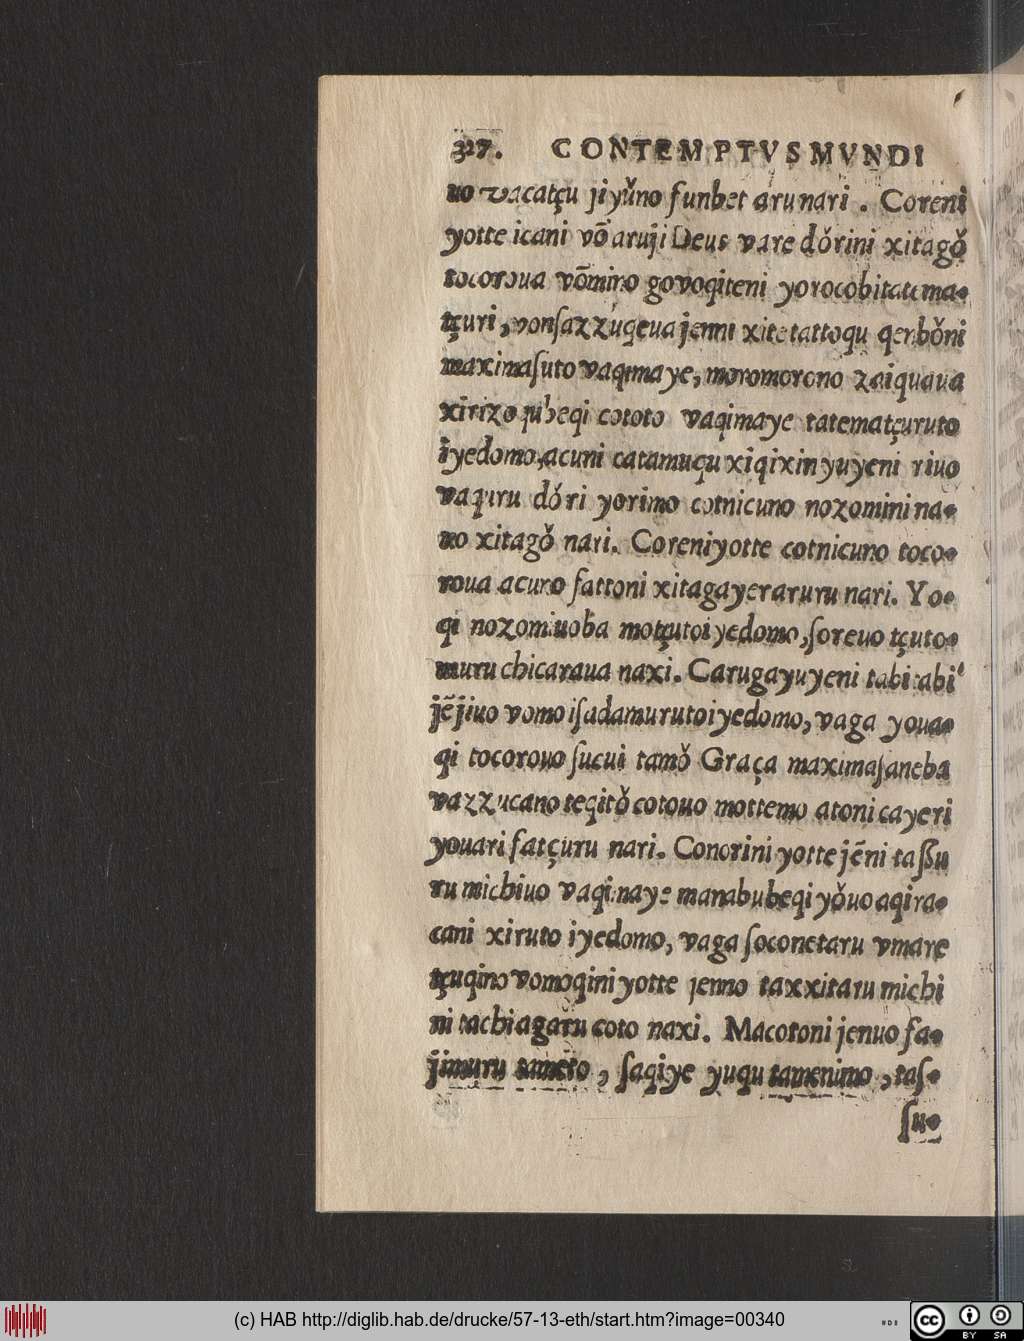 327. CONTEMPTVS MVNDI
uo vacatçu jiyǔno funbet aru nari. Coreni
yotte icani võ aruji Deus vare dǒrini xitagǒ
tocoroua võmino govoqiteni yorocobitatema-
tçuri, vonſazzuqeua jenni xite tattoqu qenbǒni
maximaſuto vaqimaye, moromorono zaiquaua
xirizoqubeqi cototo vaqimaye tatematçuruto
iyedomo, acuni catamuqu xiqixin yuyeni riuo
vaqiru dǒri yorimo cotnicuno nozomini na-
uo xitagǒ nari. Coreni yotte cotnicuno toco-
roua acuno fattoni xitagayeraruru nari. Yo-
qi nozomiuoba motçutoiyedomo, ſoreuo tçuto-
muru chicaraua naxi. Carugayuyeni tabitabi
jẽjiuo vomoiſadamurutoiyedomo, vaga youa-
qi tocorouo ſucui tamǒ Graça maximaſaneba
vazzucano teqitǒ cotouo mottemo atoni cayeri
youari fatçuru nari. Conorini yotte jẽni taſſu
ru michiuo vaqimaye manabubeqi yǒuo aqira-
cani xiruto iyedomo, vaga ſoconetaru vmare
tçuqino vomoqini yotte jenno taxxitaru michi
ni tachiagaru coto naxi. Macotoni jenuo fa-
jimuru tameto, ſaqiye yuqu tamenimo, taſ-
ſu-
(c) HAB http://diglib.hab.de/drucke/57-13-eth/start.htm?image=00340
cc BY SA